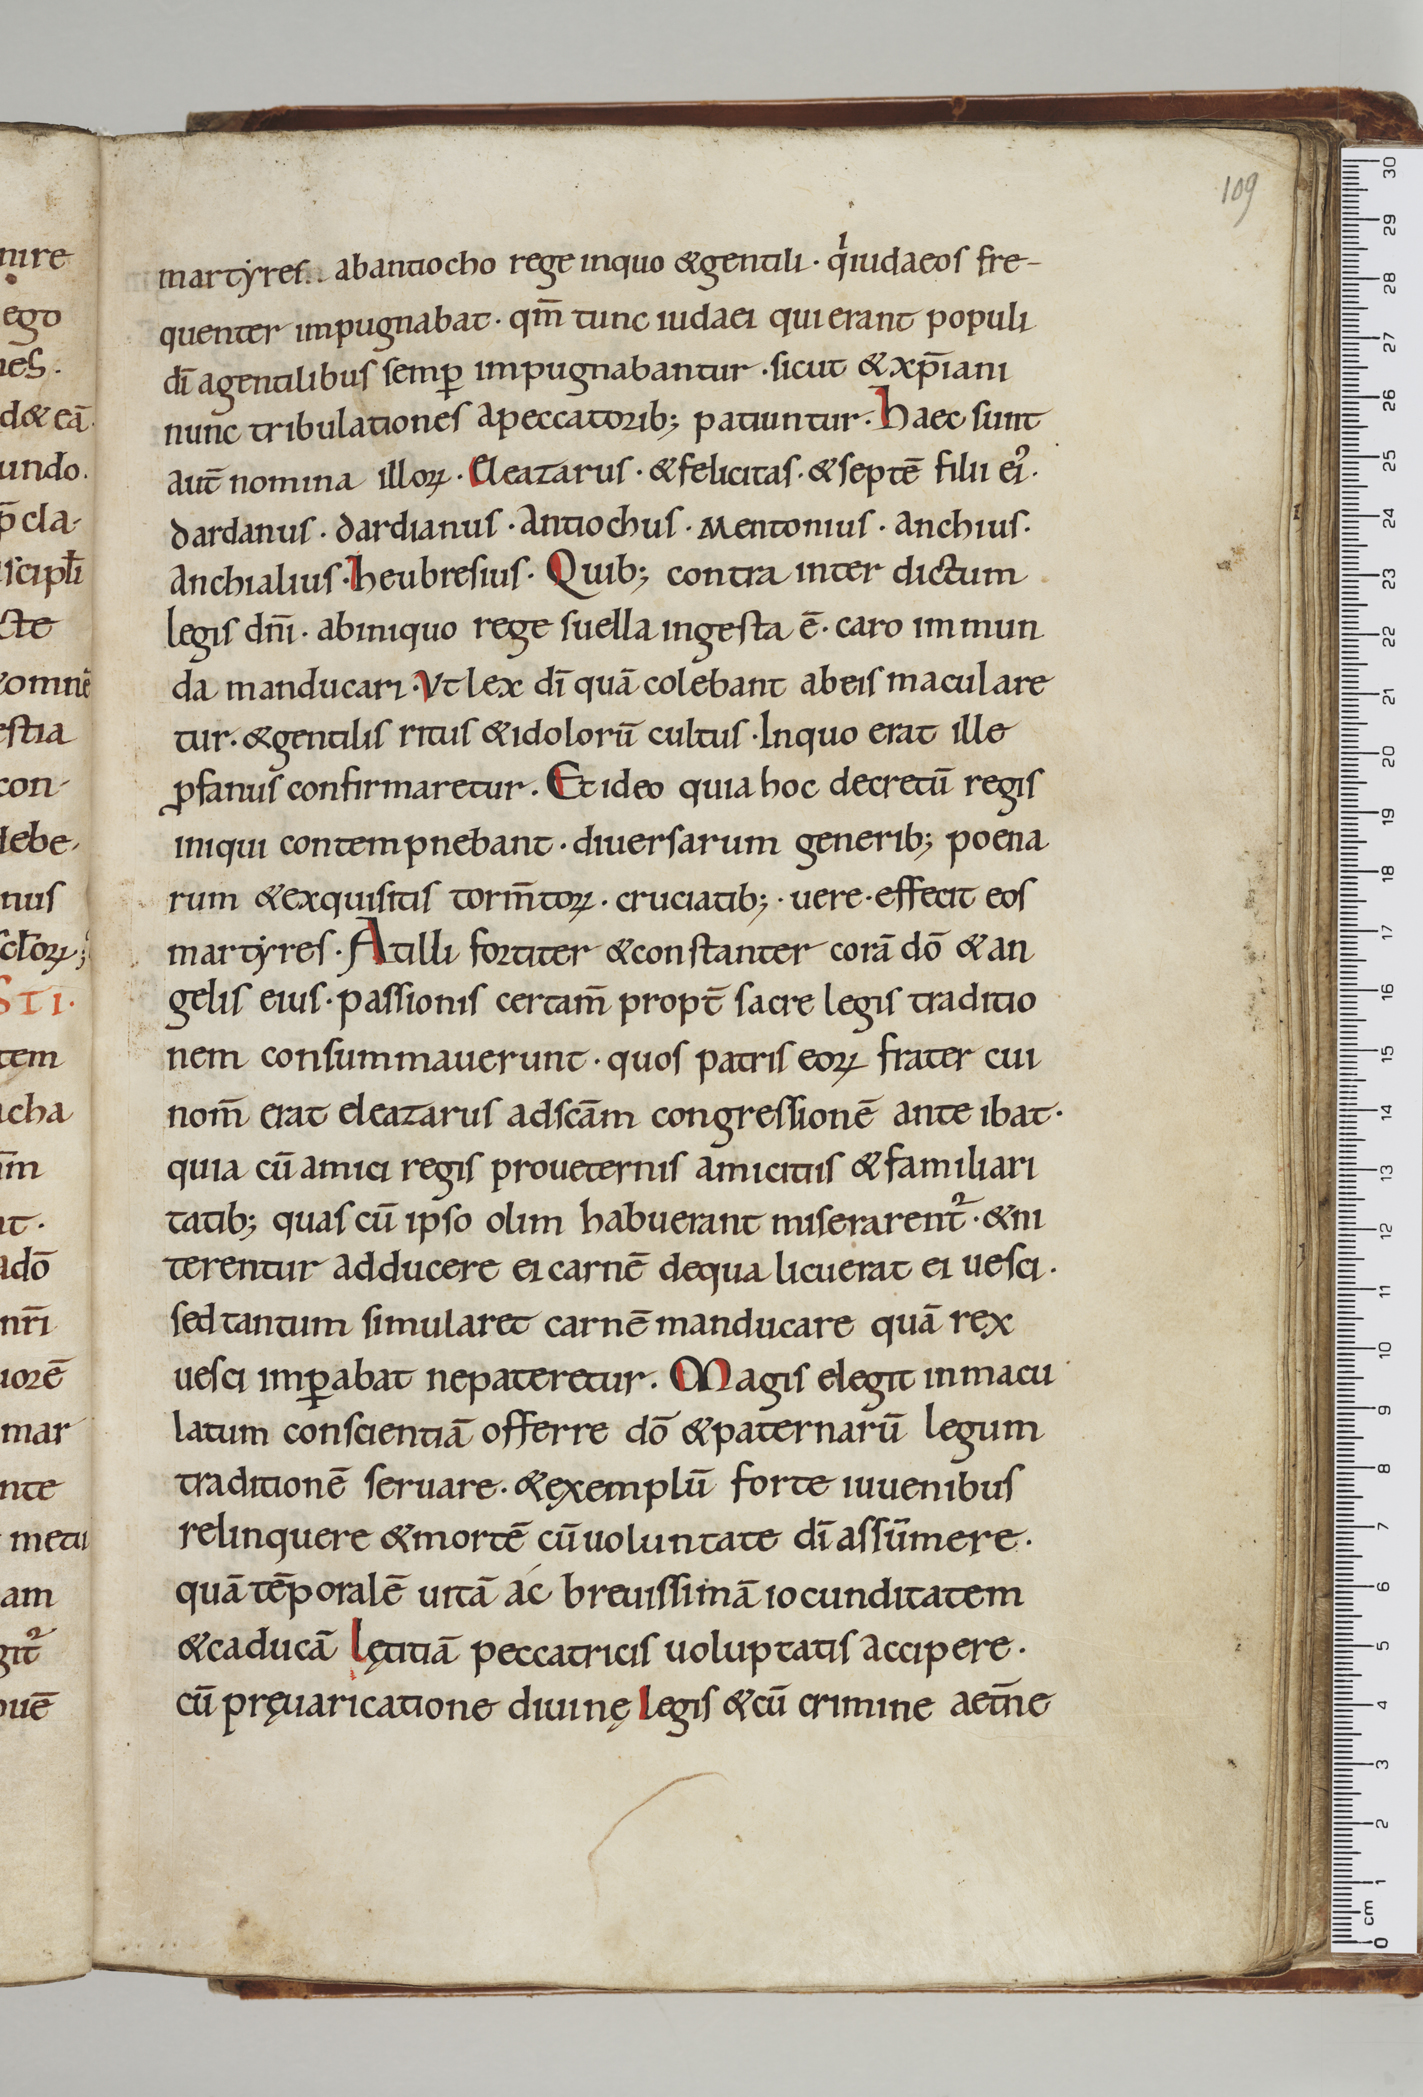 109
martyres abantiocho rege inquo &gentili · qͥiudaeos fre-
quenter impugnabat · qm̄ tunc iudaei qui erant populi
dī agentilibus semꝑ impugnabantur · sicut & xp̄iani
nunc tribulationes apeccatorib; patiuntur · haec sunt
aut̄ nomina illoꝝ · Eleazarus · &felicitas · &septē filii ei᾽ ·
dardanus · dardianus · antiochus · mentonius · anchius ·
anchialius · heubresius · Quib; contra inter dictum
legis dn̄i · abiniquo rege suella ingesta ē · caro immun
da manducari · Vt lex dī quā colebant abeis maculare
tur · &gentilis ritus &idolorū cultus · Inquo erat ille
ꝓfanus confirmaretur . Et ideo quia hoc decretū regis
iniqui contempnebant · diuersarum generib; poena
rum &exquisitis torm̄toꝝ · cruciatib; · uere · effecit eos
martyres · At illi fortiter &constanter corā dō & an
gelis eius · passionis certam̄ propt̄ sacre legis traditio
nem consummauerunt · quos patris eoꝝ frater cui
nom̄ erat eleazarus adscām congressionē ante ibat ·
quia cū amici regis proueternis amicitiis &familiari
tatib; quas cū ipso olim habuerant miserarent᷑ · &ni
terentur adducere ei carnē dequa licuerat ei uesci ·
sed tantum simularet carnē manducare quā rex
uesci imꝑabat nepateretur . Magis elegit inmacu
latum conscientiā offerre dō &paternarū legum
traditionē seruare · &exemplū forte iuuenibus
relinquere &mortē cū uoluntate dī assūmere ·
quā tēporalē uitā ac breuissimā iocunditatem
&caducā lętitiā peccatricis uoluptatis accipere ·
cū pręuaricatione diuinę legis &cū crimine aet̄ne